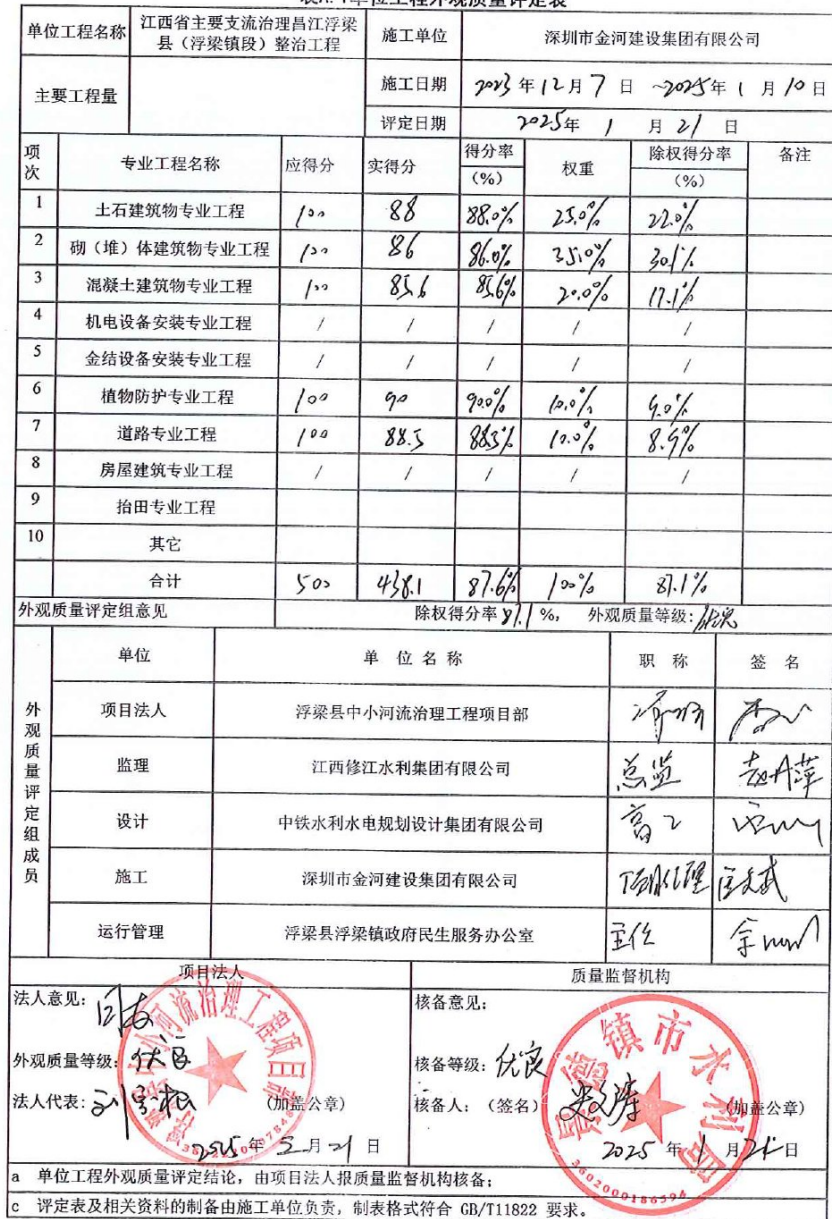 单位工程外观质量评定表
单位工程名称 江西省主要支流治理昌江浮梁县（浮梁镇段）整治工程 施工单位 深圳市金河建设集团有限公司
主要工程量 施工日期 2023年12月7日 ~2025年1月10日
评定日期 2025年1月21日
项次 专业工程名称 应得分 实得分 得分率（%） 权重 除权得分率（%） 备注
1 土石建筑物专业工程 100 88 88.0% 25.0% 22.0%
2 砌（堆）体建筑物专业工程 100 86 86.0% 35.0% 30.1%
3 混凝土建筑物专业工程 100 85.6 85.6% 20.0% 17.1%
4 机电设备安装专业工程 / / / / /
5 金结设备安装专业工程 / / / / /
6 植物防护专业工程 100 90 90.0% 10.0% 9.0%
7 道路专业工程 100 88.5 88.5% 10.0% 8.9%
8 房屋建筑专业工程 / / / / /
9 抬田专业工程
10 其它
合计 500 438.1 87.6% 100% 87.1%
外观质量评定组意见 除权得分率87.1%， 外观质量等级:优良
外观质量评定组成员
单位 单位名称 职称 签名
项目法人 浮梁县中小河流治理工程项目部
监理 江西修江水利集团有限公司 总监 赵丹萍
设计 中铁水利水电规划设计集团有限公司 高工
施工 深圳市金河建设集团有限公司 项目经理
运行管理 浮梁县浮梁镇政府民生服务办公室 主任
项目法人 质量监督机构
法人意见: 同意 核备意见:
外观质量等级: 优良 核备等级: 优良
法人代表: （加盖公章） 核备人:（签名） （加盖公章）
2025年 月21日 2025年1月 日
中小河流治理工程项目部
景德镇市水利局
3602000186594
a 单位工程外观质量评定结论，由项目法人报质量监督机构核备;
c 评定表及相关资料的制备由施工单位负责，制表格式符合 GB/T11822 要求。